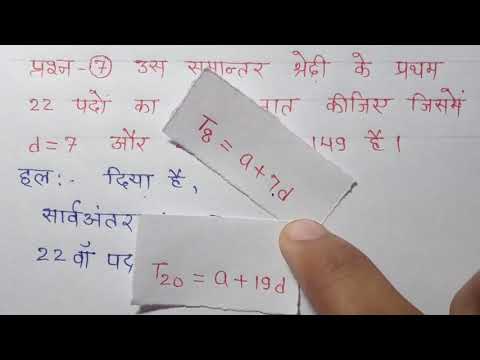 प्रश्न-⑦ उस समान्तर श्रेढ़ी के प्रथम
22 पदों का ात कीजिए जिसमें
d=7 और 149 है।
हल:- दिया है,
सार्वअंतर
22वाँ पद
T₈ = a+7d
T₂₀ = a+19d